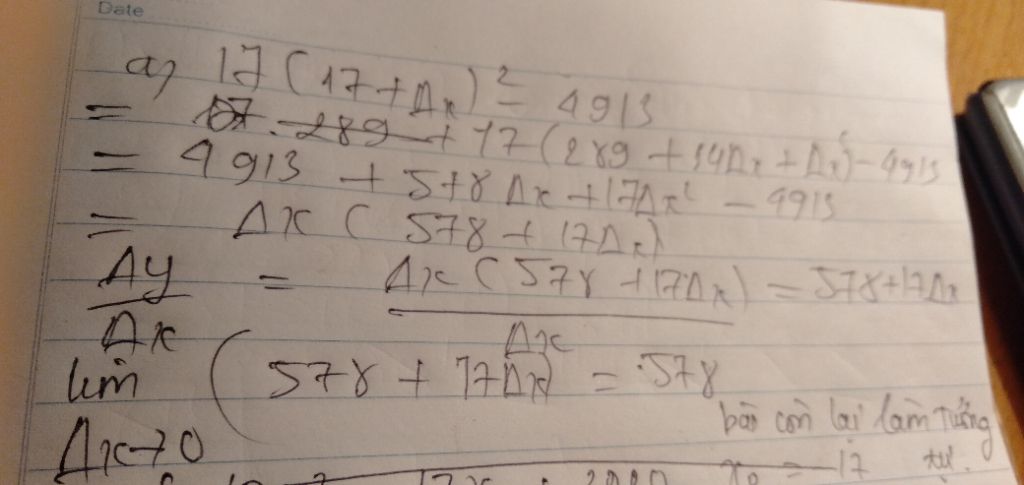 Date
a) 17 (17 + Δx)² - 4913
= 17 . 289 + 17 (289 + 34Δx + Δx²) - 4913
= 4913 + 578 Δx + 17Δx² - 4913
= Δx ( 578 + 17Δx)
Δy / Δx = Δx (578 + 17Δx) / Δx = 578 + 17Δx
lim Δx→0 (578 + 17Δx) = 578
bài còn lại làm tương tự.
x₀ = 17